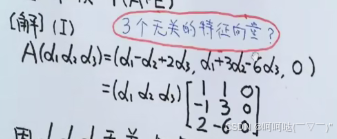 [解] (I) 3个无关的特征向量?
A(α₁α₂α₃) = (α₁-α₂+2α₃, α₁+3α₂-6α₃, 0)
= (α₁ α₂ α₃) [1 1 0
-1 3 0
2 -6 0]